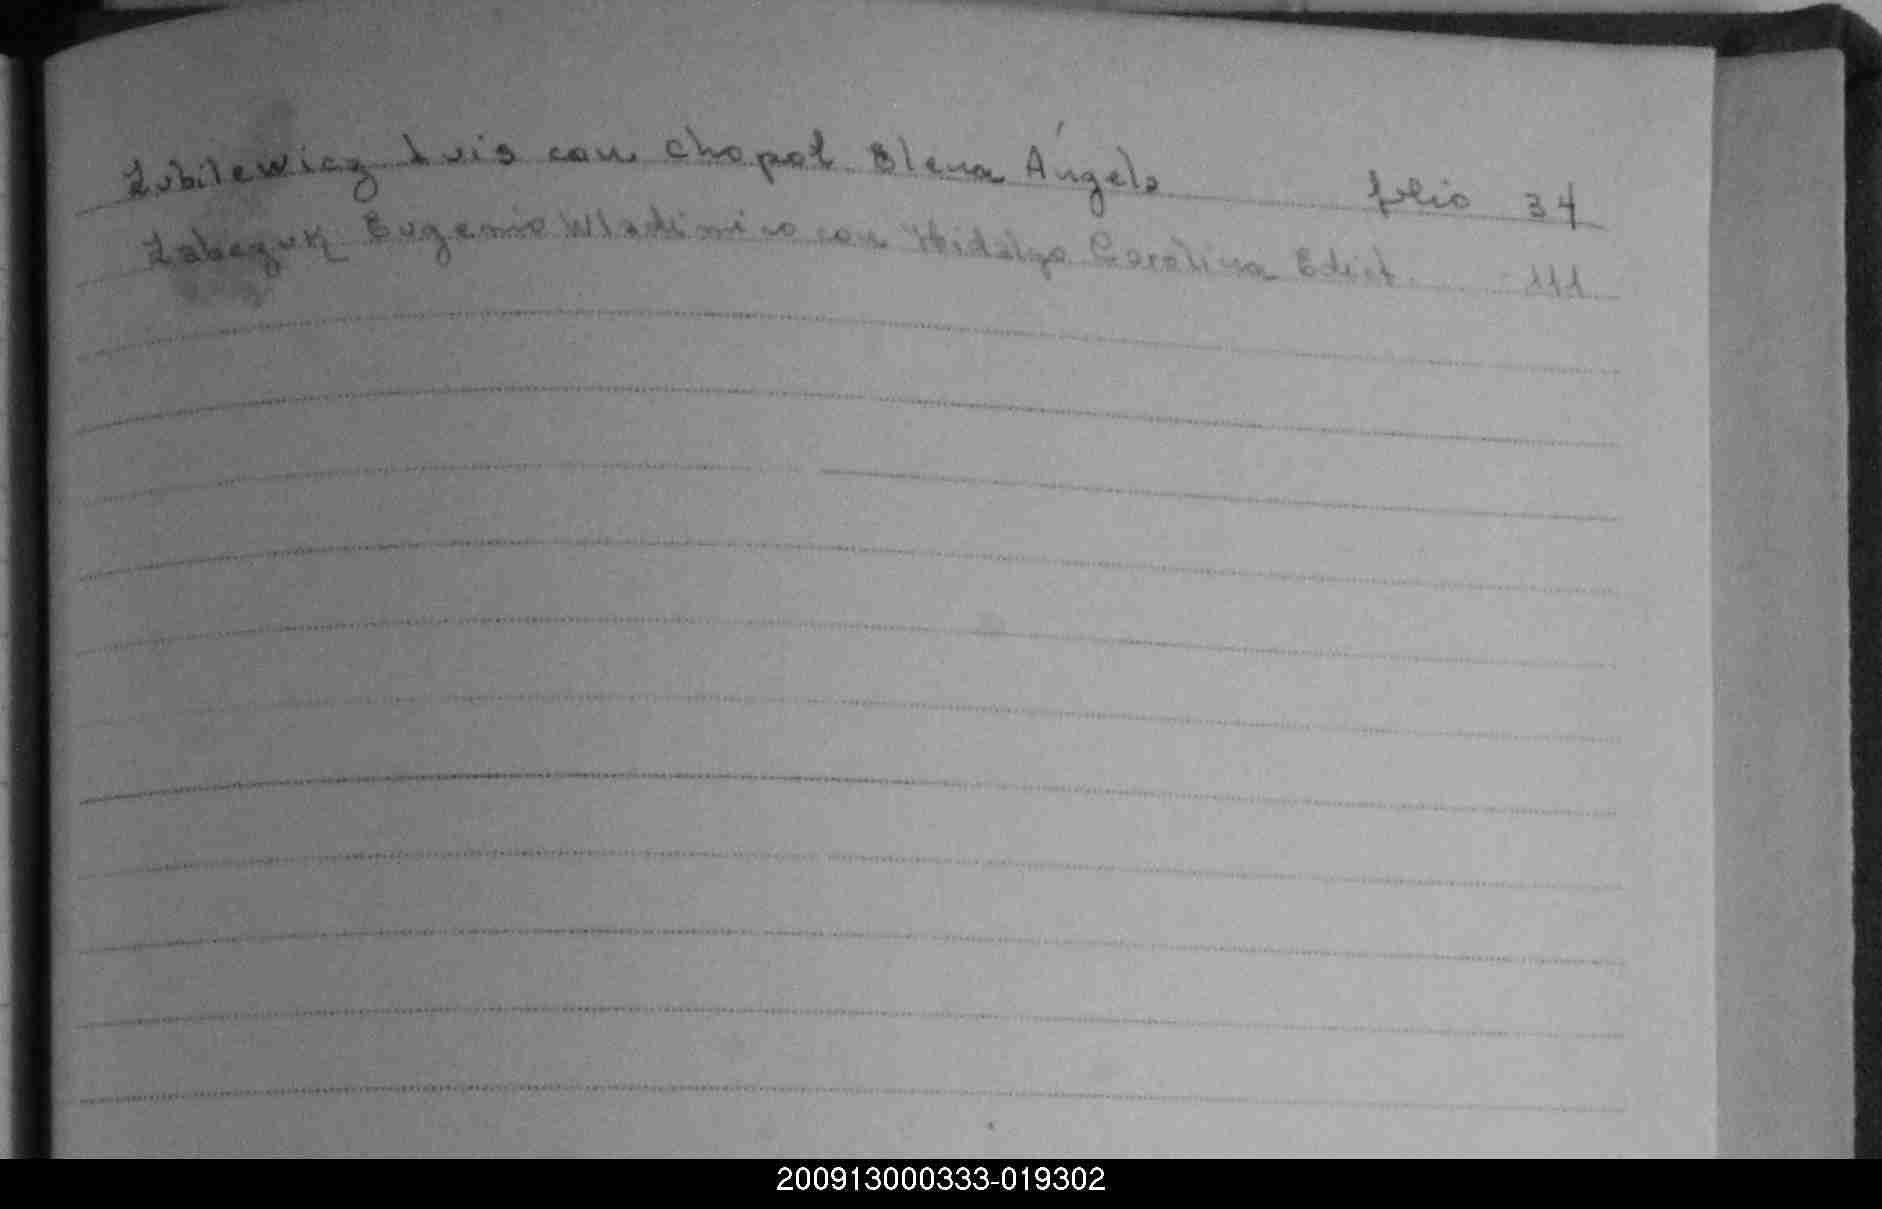 Zubilewicz Luis con Chopot Elena Ángela folio 34
Zabezuk Eugenio Wladimiro con Hidalgo Carolina Edict 111
200913000333-019302